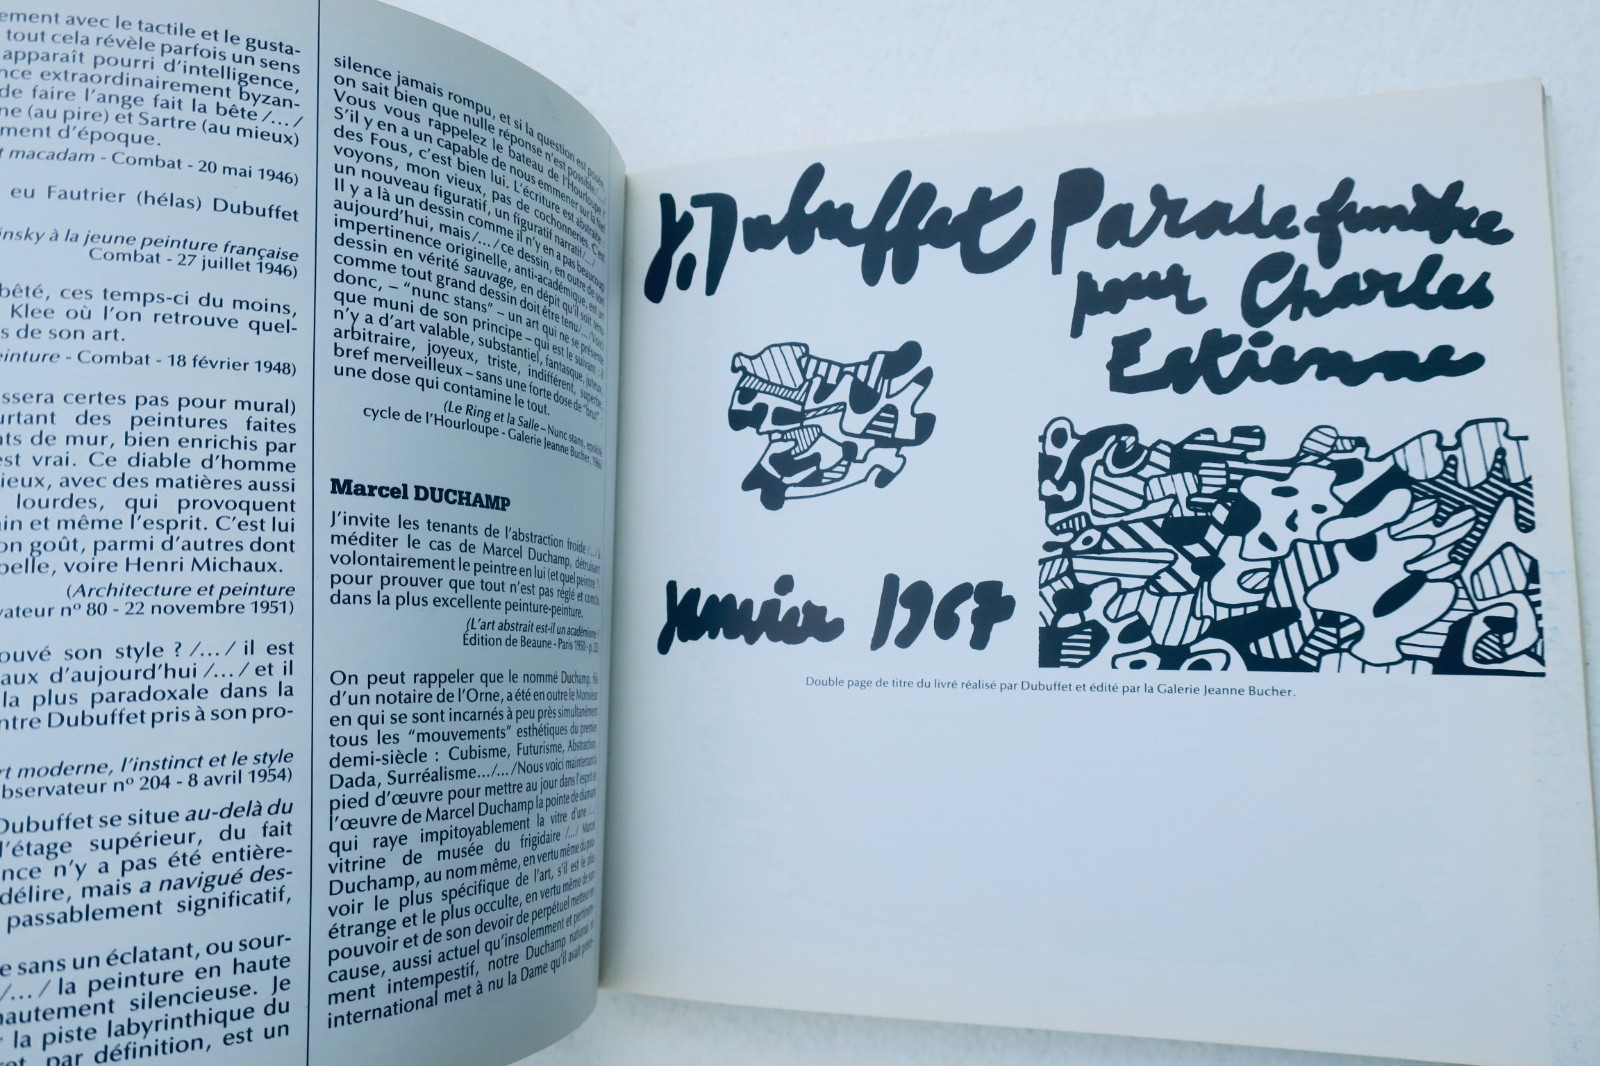 ement avec le tactile et le gusta-
tout cela révèle parfois un sens
apparaît pourri d'intelligence,
nce extraordinairement byzan-
de faire l'ange fait la bête /.../
ne (au pire) et Sartre (au mieux)
ment d'époque.
t macadam - Combat - 20 mai 1946)
eu Fautrier (hélas) Dubuffet
insky à la jeune peinture française
Combat - 27 juillet 1946)
bêté, ces temps-ci du moins,
Klee où l'on retrouve quel-
s de son art.
einture - Combat - 18 février 1948)
ssera certes pas pour mural)
urtant des peintures faites
nts de mur, bien enrichis par
est vrai. Ce diable d'homme
ieux, avec des matières aussi
lourdes, qui provoquent
in et même l'esprit. C'est lui
on goût, parmi d'autres dont
pelle, voire Henri Michaux.
(Architecture et peinture
vateur nº 80 - 22 novembre 1951)
ouvé son style ? /.../ il est
aux d'aujourd'hui /.../ et il
la plus paradoxale dans la
ntre Dubuffet pris à son pro-
rt moderne, l'instinct et le style
bservateur nº 204 - 8 avril 1954)
Dubuffet se situe au-delà du
l'étage supérieur, du fait
nce n'y a pas été entière-
délire, mais a navigué des-
passablement significatif,
e sans un éclatant, ou sour-
/.../ la peinture en haute
hautement silencieuse. Je
r la piste labyrinthique du
ret, par définition, est un
silence jamais rompu, et si la question est posée,
on sait bien que nulle réponse n'est possible./
Vous vous rappelez le bateau de l'Hourloupe ?
S'il y en a un capable de nous emmener sur la Nef
des Fous, c'est bien lui. L'écriture est abstraite :
voyons, mon vieux, pas de cochonneries. C'est
un nouveau figuratif, un figuratif narratif /.../
Il y a là un dessin comme il n'y en a pas beaucoup
aujourd'hui, mais /.../ ce dessin, en outre de son
impertinence originelle, anti-académique, est un
dessin en vérité sauvage, en dépit qu'il soit tenu
comme tout grand dessin doit être tenu /.../ Voici
donc, – "nunc stans" – un art qui ne se présente
que muni de son principe – qui est le suivant : il
n'y a d'art valable, substantiel, fantasque, juteux,
arbitraire, joyeux, triste, indifférent, superbe,
bref merveilleux – sans une forte dose de "brut",
une dose qui contamine le tout.
(Le Ring et la Salle – Nunc stans, epokhê
cycle de l'Hourloupe - Galerie Jeanne Bucher, 1966)
Marcel DUCHAMP
J'invite les tenants de l'abstraction froide /.../ à
méditer le cas de Marcel Duchamp, détruisant
volontairement le peintre en lui (et quel peintre !)
pour prouver que tout n'est pas réglé et conclu
dans la plus excellente peinture-peinture.
(L'art abstrait est-il un académisme ?
Édition de Beaune - Paris 1950 - p. 23
On peut rappeler que le nommé Duchamp, fils
d'un notaire de l'Orne, a été en outre le Monsieur
en qui se sont incarnés à peu près simultanément
tous les "mouvements" esthétiques du premier
demi-siècle : Cubisme, Futurisme, Abstraction,
Dada, Surréalisme.../.../Nous voici maintenant à
pied d'œuvre pour mettre au jour dans l'esprit et
l'œuvre de Marcel Duchamp la pointe de diamant
qui raye impitoyablement la vitre d'une /.../
vitrine de musée du frigidaire /.../ Marcel
Duchamp, au nom même, en vertu même du pou-
voir le plus spécifique de l'art, s'il est le plus
étrange et le plus occulte, en vertu même de son
pouvoir et de son devoir de perpétuel metteur en
cause, aussi actuel qu'insolemment et pertinem-
ment intempestif, notre Duchamp national et
international met à nu la Dame qu'il avait
J. Dubuffet
janvier 1967
Parade funèbre
pour Charles
Estienne
Double page de titre du livré réalisé par Dubuffet et édité par la Galerie Jeanne Bucher.